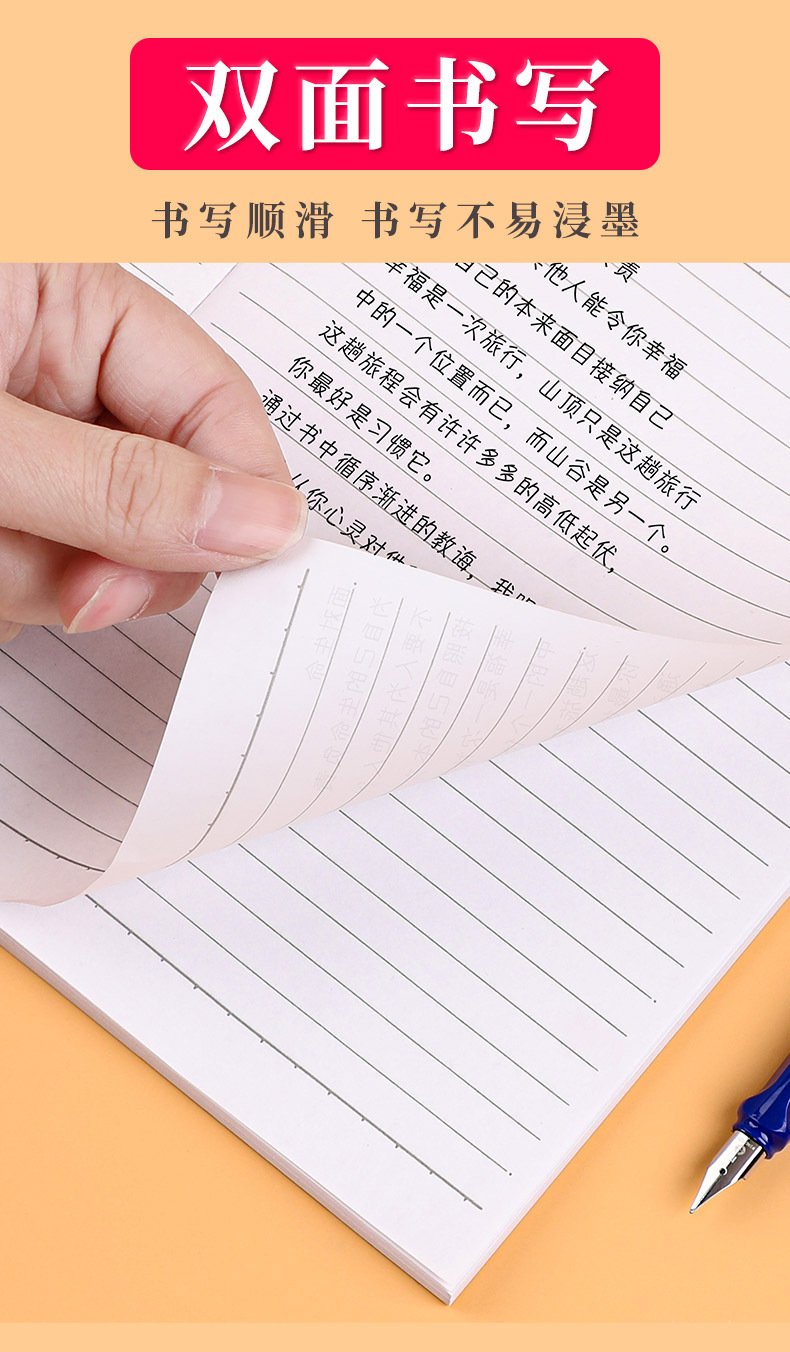 双面书写
书写顺滑 书写不易浸墨
责
他人能令你幸福
自己的本来面目接纳自己
幸福是一次旅行，山顶只是这趟旅行
中的一个位置而已，而山谷是另一个。
这趟旅程会有许许多多的高低起伏，
你最好是习惯它。
通过书中循序渐进的教诲，我
从你心灵对